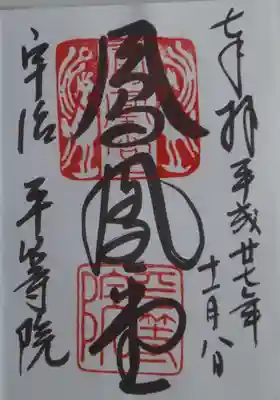 奉拝 平成廿七年
十一月八日
鳳凰堂
宇治 平等院
平等院